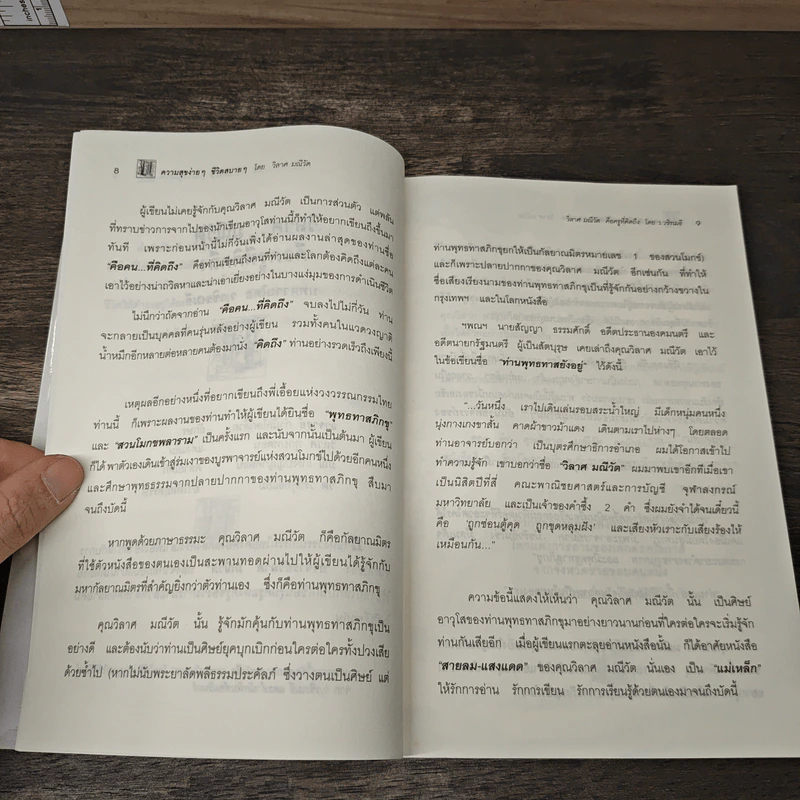 inches 1
8 ความสุขง่ายๆ ชีวิตสบายๆ โดย วิลาศ มณีวัต
ผู้เขียนไม่เคยรู้จักกับคุณวิลาศ มณีวัต เป็นการส่วนตัว แต่พลัน
ที่ทราบข่าวการจากไปของนักเขียนอาวุโสท่านนี้ก็ทำให้อยากเขียนถึงขึ้นมา
ทันที เพราะก่อนหน้านี้ไม่กี่วันเพิ่งได้อ่านผลงานล่าสุดของท่านชื่อ
"คือคน...ที่คิดถึง" คือท่านเขียนถึงคนที่ท่านและโลกต้องคิดถึงแต่ละคน
เอาไว้อย่างน่าถวิลหาและน่าเอาเยี่ยงอย่างในบางแง่มุมของการดำเนินชีวิต
ไม่นึกว่าถัดจากอ่าน "คือคน...ที่คิดถึง" จบลงไปไม่กี่วัน ท่าน
จะกลายเป็นบุคคลที่คนรุ่นหลังอย่างผู้เขียน รวมทั้งคนในแวดวงญาติ
น้ำหมึกอีกหลายต่อหลายคนต้องมานั่ง "คิดถึง" ท่านอย่างรวดเร็วถึงเพียงนี้
เหตุผลอีกอย่างหนึ่งที่อยากเขียนถึงพี่เอื้อยแห่งวงวรรณกรรมไทย
ท่านนี้ ก็เพราะผลงานของท่านทำให้ผู้เขียนได้ยินชื่อ "พุทธทาสภิกขุ"
และ "สวนโมกขพลาราม" เป็นครั้งแรก และนับจากนั้นเป็นต้นมา ผู้เขียน
ก็ได้พาตัวเองเดินเข้าสู่ร่มเงาของบูรพาจารย์แห่งสวนโมกข์ไปด้วยอีกคนหนึ่ง
และศึกษาพุทธธรรมจากปลายปากกาของท่านพุทธทาสภิกขุ สืบมา
จนถึงบัดนี้
หากพูดด้วยภาษาธรรมะ คุณวิลาศ มณีวัต ก็คือกัลยาณมิตร
ที่ใช้ตัวหนังสือของตนเองเป็นสะพานทอดผ่านไปให้ผู้เขียนได้รู้จักกับ
มหากัลยาณมิตรที่สำคัญยิ่งกว่าตัวท่านเอง ซึ่งก็คือท่านพุทธทาสภิกขุ
คุณวิลาศ มณีวัต นั้น รู้จักมักคุ้นกับท่านพุทธทาสภิกขุเป็น
อย่างดี และต้องนับว่าท่านเป็นศิษย์ยุคบุกเบิกก่อนใครต่อใครทั้งปวงเสีย
ด้วยซ้ำไป (หากไม่นับพระยาลัดพลีธรรมประคัลภ์ ซึ่งวางตนเป็นศิษย์ แต่
วิลาศ มณีวัต : คือครูที่คิดถึง โดย ว.วชิรเมธี 9
ท่านพุทธทาสภิกขุยกให้เป็นกัลยาณมิตรหมายเลข 1 ของสวนโมกข์)
และก็เพราะปลายปากกาของคุณวิลาศ มณีวัต อีกเช่นกัน ที่ทำให้
ชื่อเสียงเรียงนามของท่านพุทธทาสภิกขุเป็นที่รู้จักกันอย่างกว้างขวางใน
กรุงเทพฯ และในโลกหนังสือ
ฯพณฯ นายสัญญา ธรรมศักดิ์ อดีตประธานองคมนตรี และ
อดีตนายกรัฐมนตรี ผู้เป็นสัตบุรุษ เคยเล่าถึงคุณวิลาศ มณีวัต เอาไว้
ในข้อเขียนชื่อ "ท่านพุทธทาสยังอยู่" ไว้ดังนี้
"...วันหนึ่ง เราไปเดินเล่นรอบสระน้ำใหญ่ มีเด็กหนุ่มคนหนึ่ง
นุ่งกางเกงขาสั้น คาดผ้าขาวม้าแดง เดินตามเราไปห่างๆ โดยตลอด
ท่านอาจารย์บอกว่า เป็นบุตรศึกษาธิการอำเภอ ผมได้โอกาสเข้าไป
ทำความรู้จัก เขาบอกว่าชื่อ "วิลาศ มณีวัต" ผมมาพบเขาอีกทีเมื่อเขา
เป็นนิสิตปีที่สี่ คณะพาณิชยศาสตร์และการบัญชี จุฬาลงกรณ์
มหาวิทยาลัย และเป็นเจ้าของคำซึ้ง 2 คำ ซึ่งผมยังจำได้จนเดี๋ยวนี้
คือ 'ถูกซ่อนตู้คุด ถูกขุดหลุมฝัง' และเสียงหัวเราะกับเสียงร้องไห้
เหมือนกัน..."
ความข้อนี้แสดงให้เห็นว่า คุณวิลาศ มณีวัต นั้น เป็นศิษย์
อาวุโสของท่านพุทธทาสภิกขุมาอย่างยาวนานก่อนที่ใครต่อใครจะเริ่มรู้จัก
ท่านกันเสียอีก เมื่อผู้เขียนแรกตะลุยอ่านหนังสือนั้น ก็ได้อาศัยหนังสือ
"สายลม-แสงแดด" ของคุณวิลาศ มณีวัต นั่นเอง เป็น "แม่เหล็ก"
ให้รักการอ่าน รักการเขียน รักการเรียนรู้ด้วยตนเองมาจนถึงบัดนี้